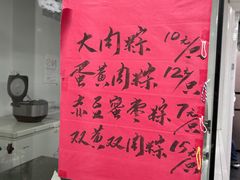 大肉粽 10元/只
蛋黄肉粽 12元/只
赤豆蜜枣粽 7元/只
双黄双肉粽 15元/只